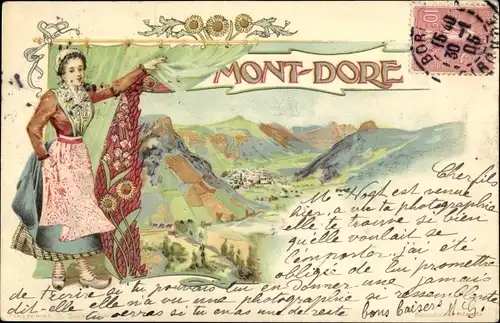 MONT-DORE
10
BOR
15 10
30 11
05
Cher fils
Mme Hogh est venue
hier, a votre photographie
elle te trouve si bien
qu'elle voulait se
l'emporter. j'ai été
obligé de lui promettre
de t'ecrire si tu pouvais lui en donner une jamais
dit-elle elle n'a vu une photographie si ressemblante
tu verras si tu en as une de reste. Bons baisers. M. G.